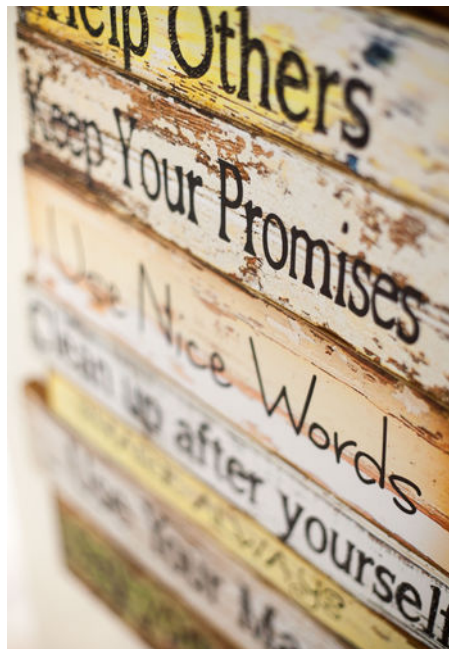 Help Others
Keep Your Promises
Use Nice Words
Clean up after yourself
Use Your Ma